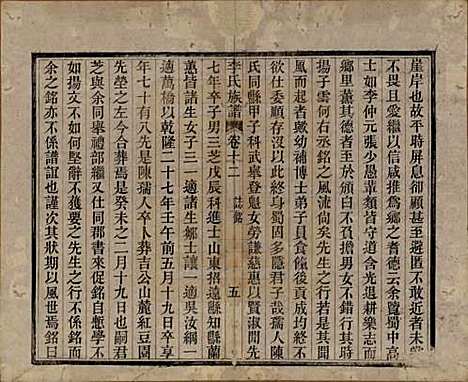 崖岸也故平時屏息卻顧甚至避匿不敢近者未
不畏且愛繼以信感咸推為鄉之耆德云余覽蜀中高
士如李仲元張少愚輩類皆守道含光退耕樂志而
鄉里薰其德者至於雍睦成風男女不苟行路相讓
揚子雲何右丞銘之風流尚矣先生之行若有聞之
而起者與幼補博士弟子員食餼後貢成均終不
欲仕委順存沒以此終身蜀固多隱君子哉孺人陳
氏同縣甲子科武舉登魁女勞謙慈惠以賢淑聞先
李氏族譜 卷十二 誌銘 五
七年卒子男三芝戊辰科進士山東招遠縣知縣蘭
蕙皆諸生女子三一適諸生鄒士讓一適吳汝綱一
適萬檢以乾隆二十七年壬午前五月十九日卒享
年七十有八先是陳孺人卒卜葬吉公山麓紅豆園
先塋之左今合葬焉是癸未之二月十九日也嗣君
芝與余同舉禮部又同出沖郡來促銘自慙學不
如揚文不如何堅辭不獲要之先生之行不係余銘
余之銘亦不係譜誼也爰次其狀期以風世焉銘曰